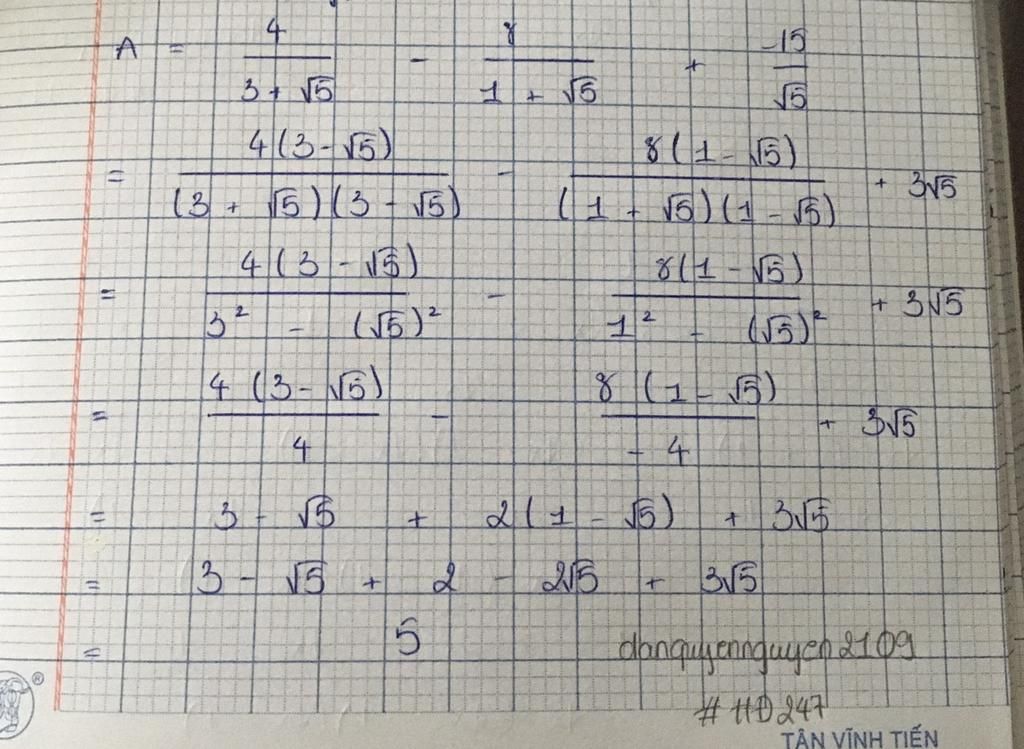 A = 4/(3 + √5) - 8/(1 + √5) + 15/√5
= 4(3 - √5)/((3 + √5)(3 - √5)) - 8(1 - √5)/((1 + √5)(1 - √5)) + 3√5
= 4(3 - √5)/(3² - (√5)²) - 8(1 - √5)/(1² - (√5)²) + 3√5
= 4(3 - √5)/4 - 8(1 - √5)/-4 + 3√5
= 3 - √5 + 2(1 - √5) + 3√5
= 3 - √5 + 2 - 2√5 + 3√5
= 5
danquyennguyen2109
# HĐ247
®
TÂN VĨNH TIẾN